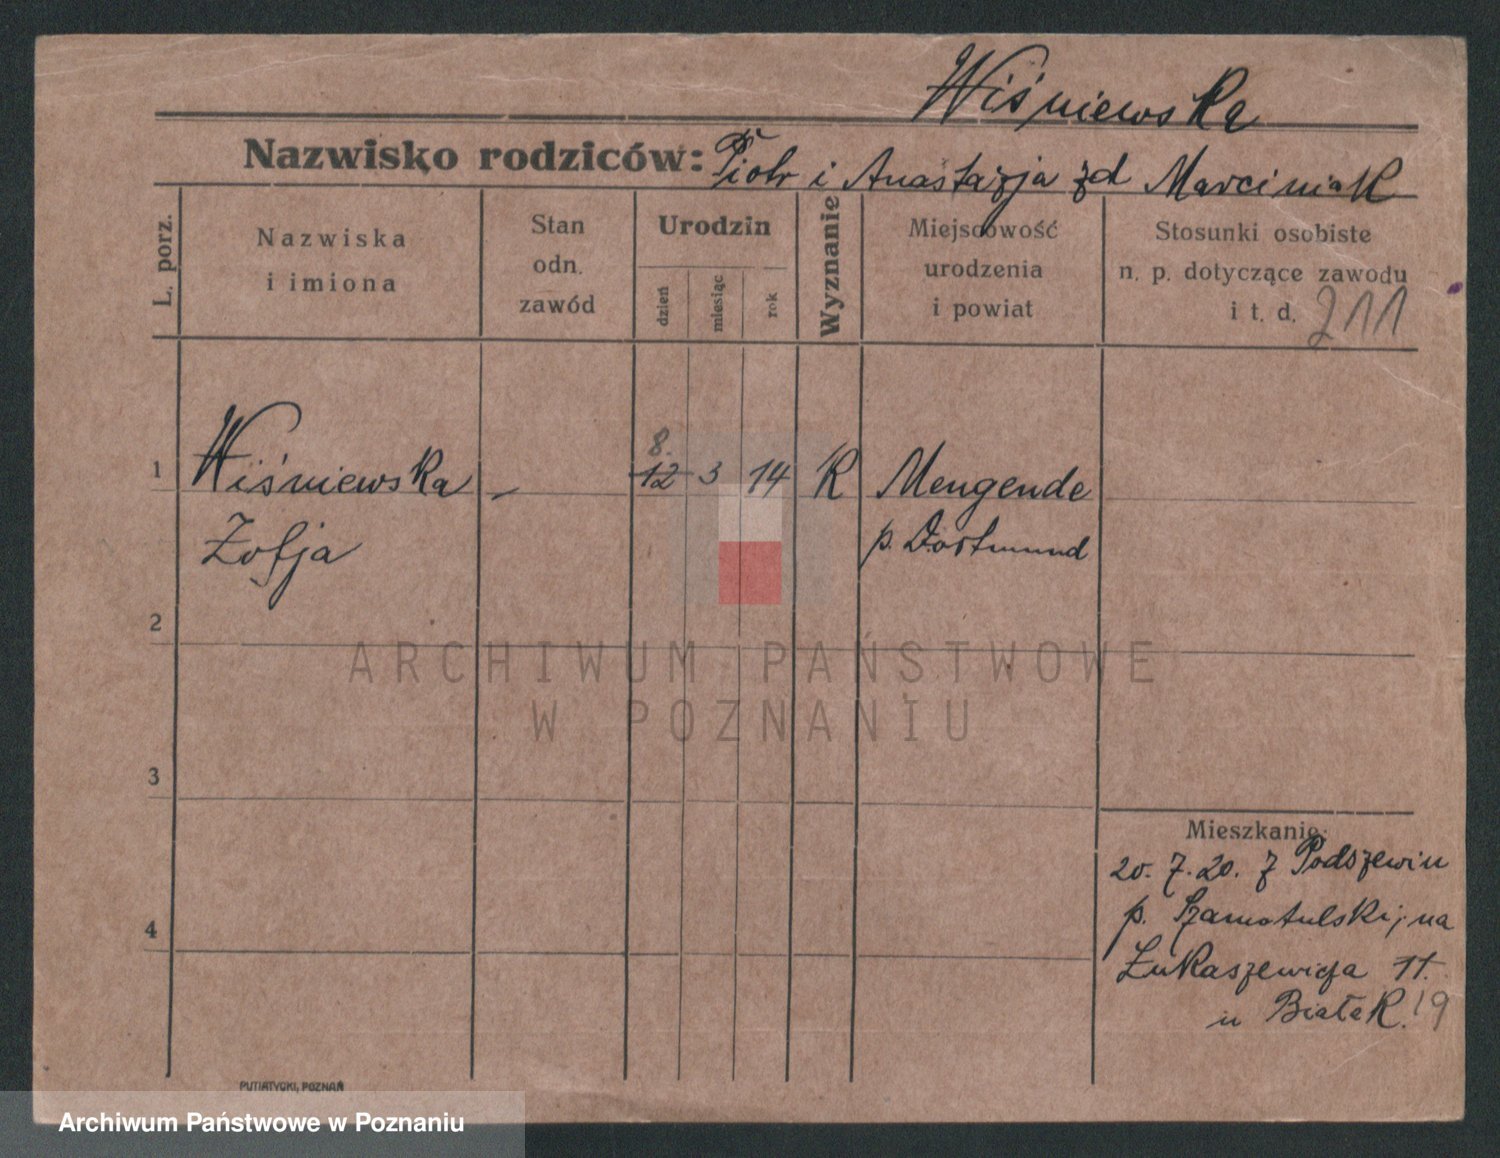 Wiśniewska
Nazwisko rodziców: Piotr i Anastazja zd Marciniak
L. porz.
Nazwiska
i imiona
Stan
odn.
zawód
Urodzin
dzień
miesiąc
rok
Wyznanie
Miejscowość
urodzenia
i powiat
Stosunki osobiste
n. p. dotyczące zawodu
i t. d. 211
8.
1 Wiśniewska - 12 3 14 K Mengende
Zofja p. Dortmund
2
3
4
Mieszkanie:
20. 7. 20. z Podrzewiu
p. Szamotulski, na
Łukaszewicza 11.
u Białak. 19
PUTIATYCKI, POZNAŃ
ARCHIWUM PAŃSTWOWE
W POZNANIU
Archiwum Państwowe w Poznaniu